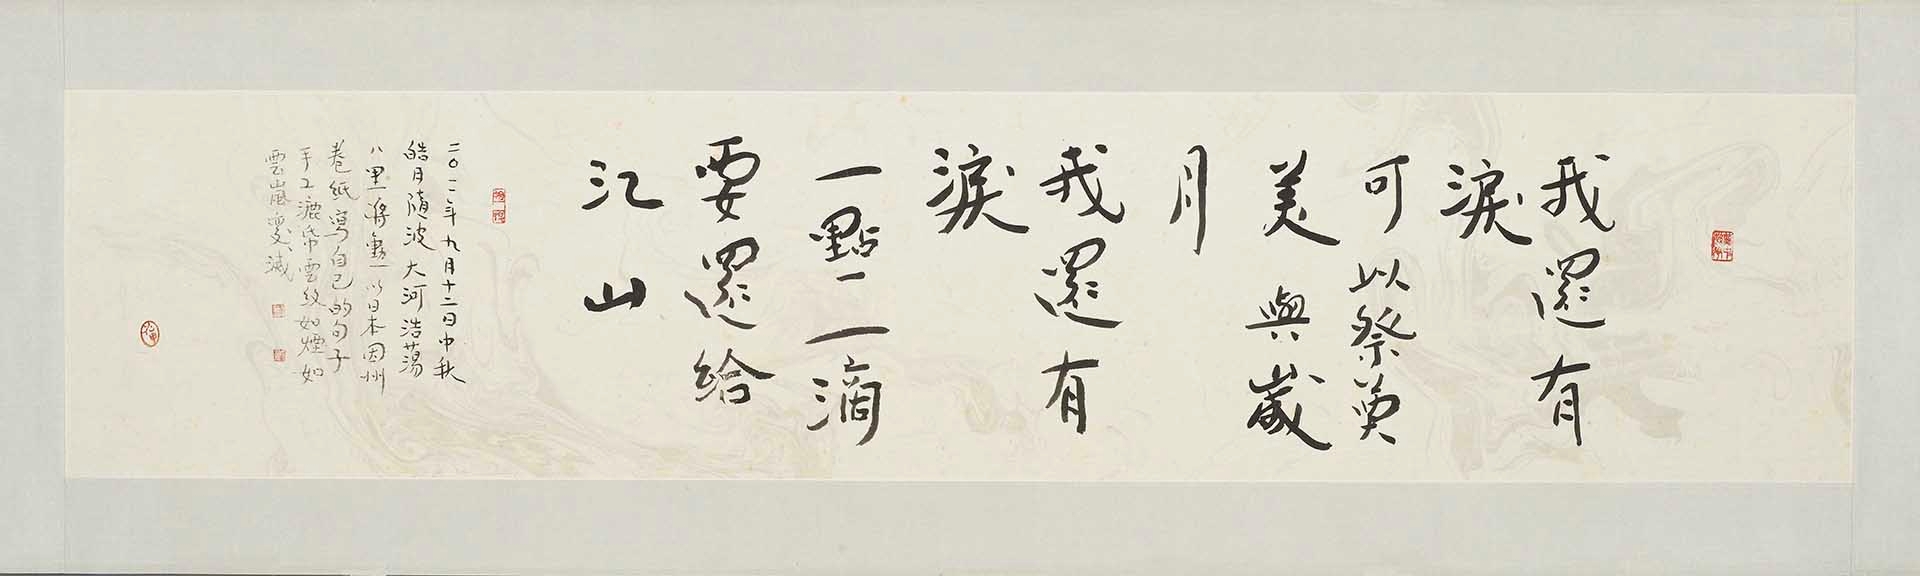 我還有
淚
可以祭奠
美與歲
月
我還有
淚
一點一滴
要還給
江山
二〇一一年九月十二日中秋
皓月隨波大河浩蕩
八里蔣勳以日本因州
卷紙寫自己的句子
手工漉帋雲紋如煙如
雲嵐變滅